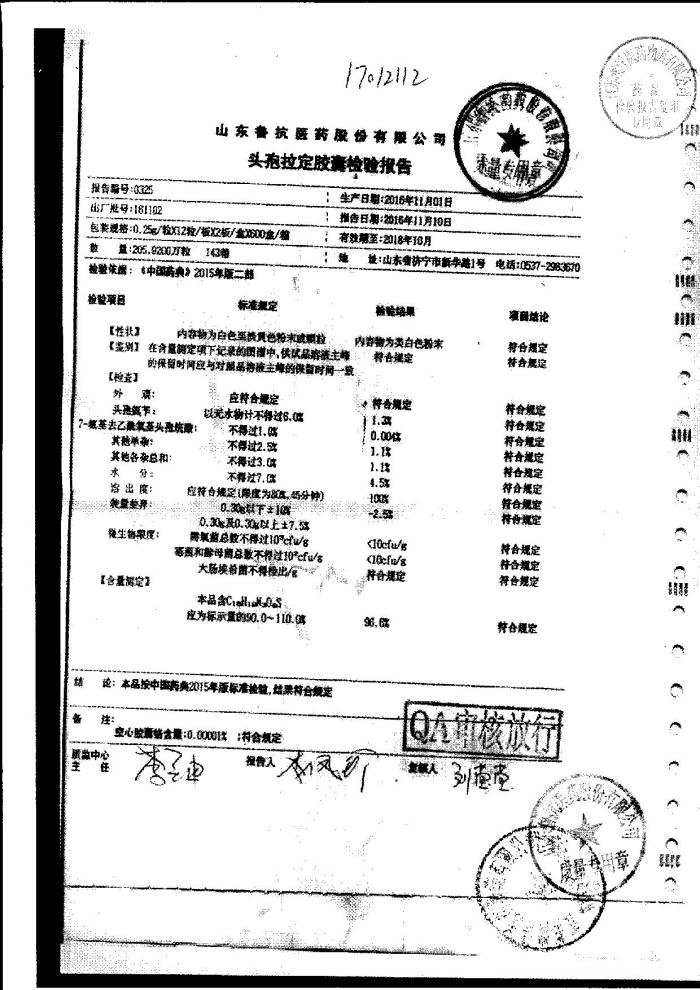 17012112
山东鲁抗医药股份有限公司
头孢拉定胶囊检验报告
质量专用章
报告编号:0325 生产日期:2016年11月01日
出厂批号:161102 报告日期:2016年11月10日
包装规格:0.25g/粒X12粒/板X2板/盒X600盒/箱 有效期至:2018年10月
数 量:205.9200万粒 143箱 地 址:山东省济宁市新华路1号 电话:0537-2983670
检验依据:《中国药典》2015年版二部
检验项目 标准规定 检验结果 项目结论
【性状】 内容物为白色至淡黄色粉末或颗粒 内容物为类白色粉末 符合规定
【鉴别】 在含量测定项下记录的图谱中,供试品溶液主峰 符合规定 符合规定
的保留时间应与对照品溶液主峰的保留时间一致
【检查】
外 观: 应符合规定 符合规定 符合规定
头孢氨苄: 以无水物计不得过6.0% 1.3% 符合规定
7-氨基去乙酰氧基头孢烷酸: 不得过1.0% 0.004% 符合规定
其他单杂: 不得过2.5% 1.1% 符合规定
其他各杂总和: 不得过3.0% 1.1% 符合规定
水 分: 不得过7.0% 4.5% 符合规定
溶 出 度: 应符合规定(限度为80%,45分钟) 100% 符合规定
装量差异: 0.30g以下±10% -2.5% 符合规定
0.30g及0.30g以上±7.5%
微生物限度: 需氧菌总数不得过10³cfu/g <10cfu/g 符合规定
霉菌和酵母菌总数不得过10²cfu/g <10cfu/g 符合规定
大肠埃希菌不得检出/g 符合规定 符合规定
【含量测定】
本品含C₁₆H₁₉N₃O₄S
应为标示量的90.0~110.0% 96.6% 符合规定
结 论: 本品按中国药典2015年版标准检验,结果符合规定
备 注:
空心胶囊铬含量:0.00001% ;符合规定
QA审核放行
质监中心
主 任 报告人 复核人
质量专用章